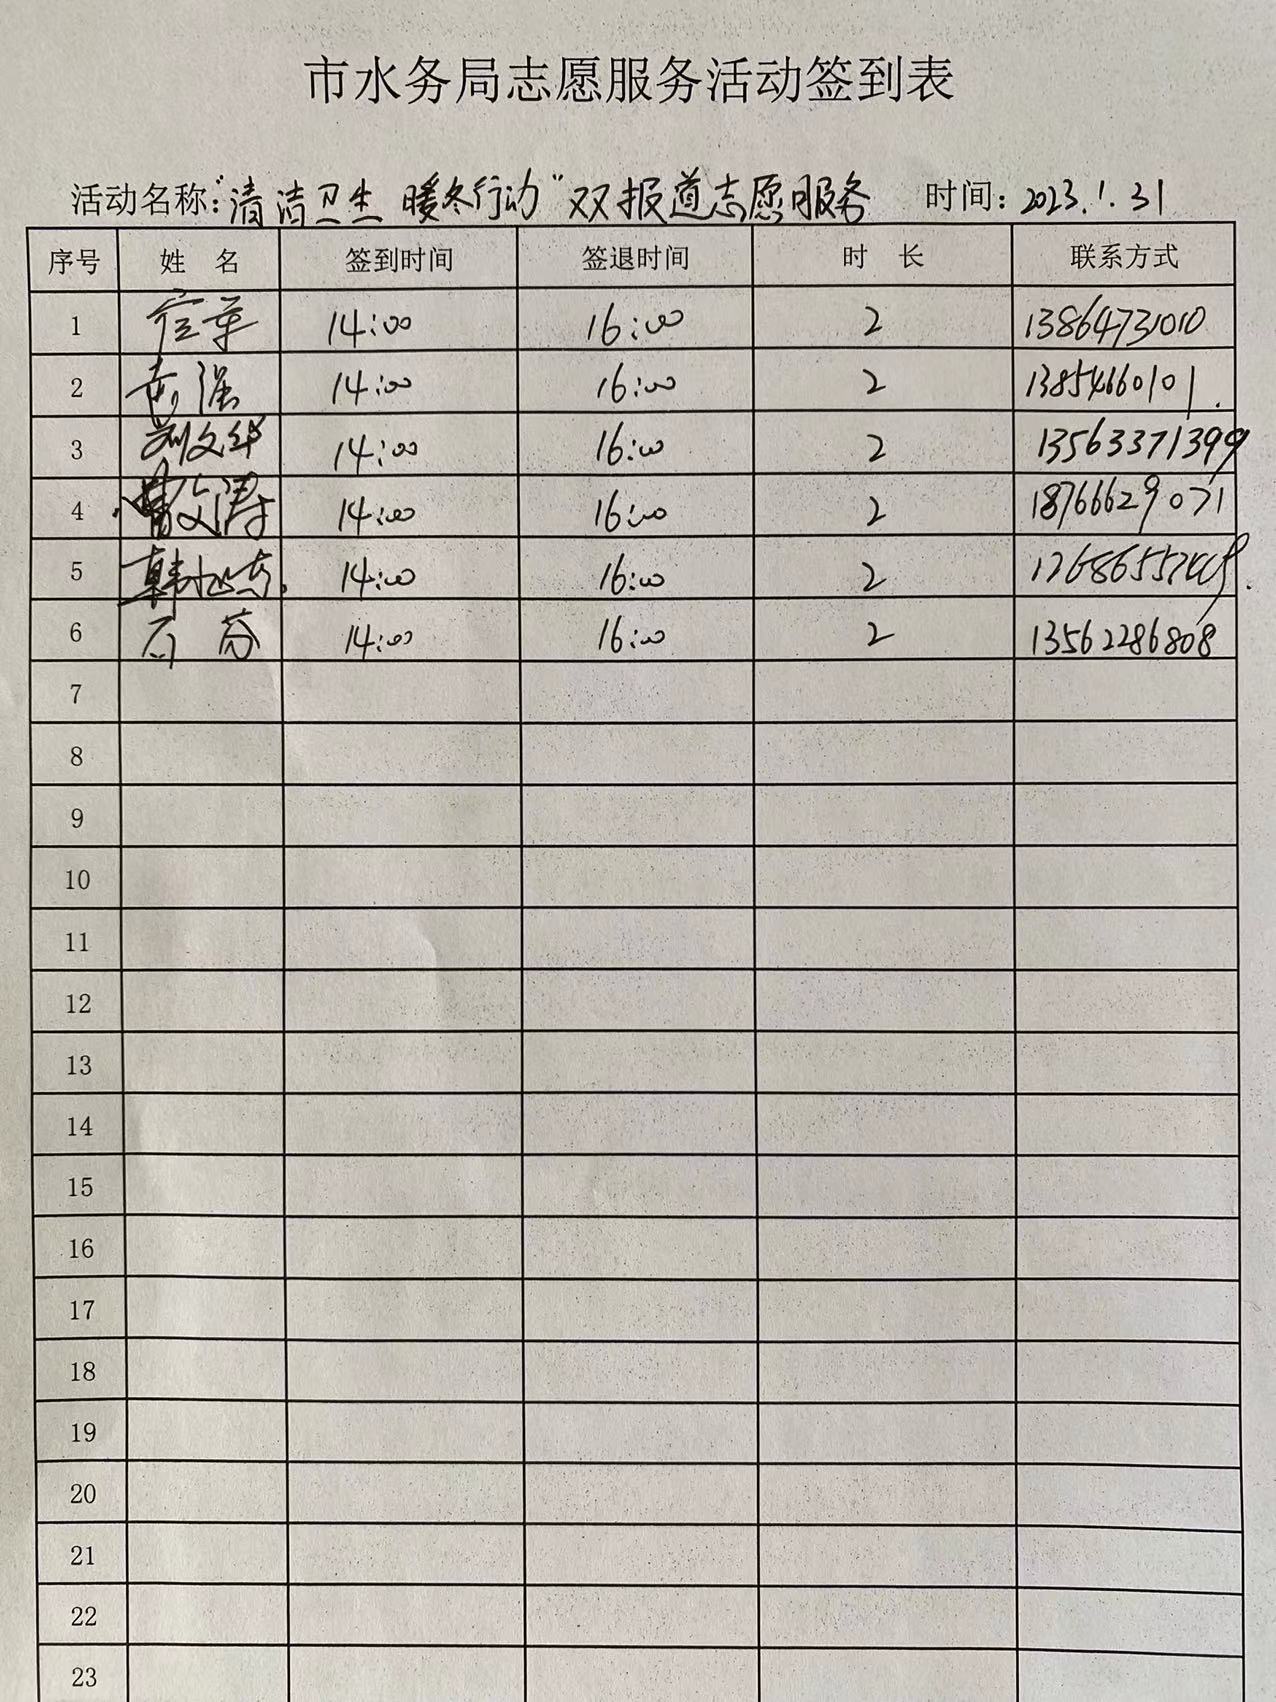 市水务局志愿服务活动签到表
活动名称:"清洁卫生 暖冬行动"双报道志愿服务 时间:2023.1.31
序号 姓 名 签到时间 签退时间 时 长 联系方式
1 14:00 16:00 2 13864731010
2 强 14:00 16:00 2 13854660101
3 刘文华 14:00 16:00 2 13563371399
4 曹文涛 14:00 16:00 2 18766629071
5 韩 14:00 16:00 2
6 石芬 14:00 16:00 2 13562286808
7
8
9
10
11
12
13
14
15
16
17
18
19
20
21
22
23